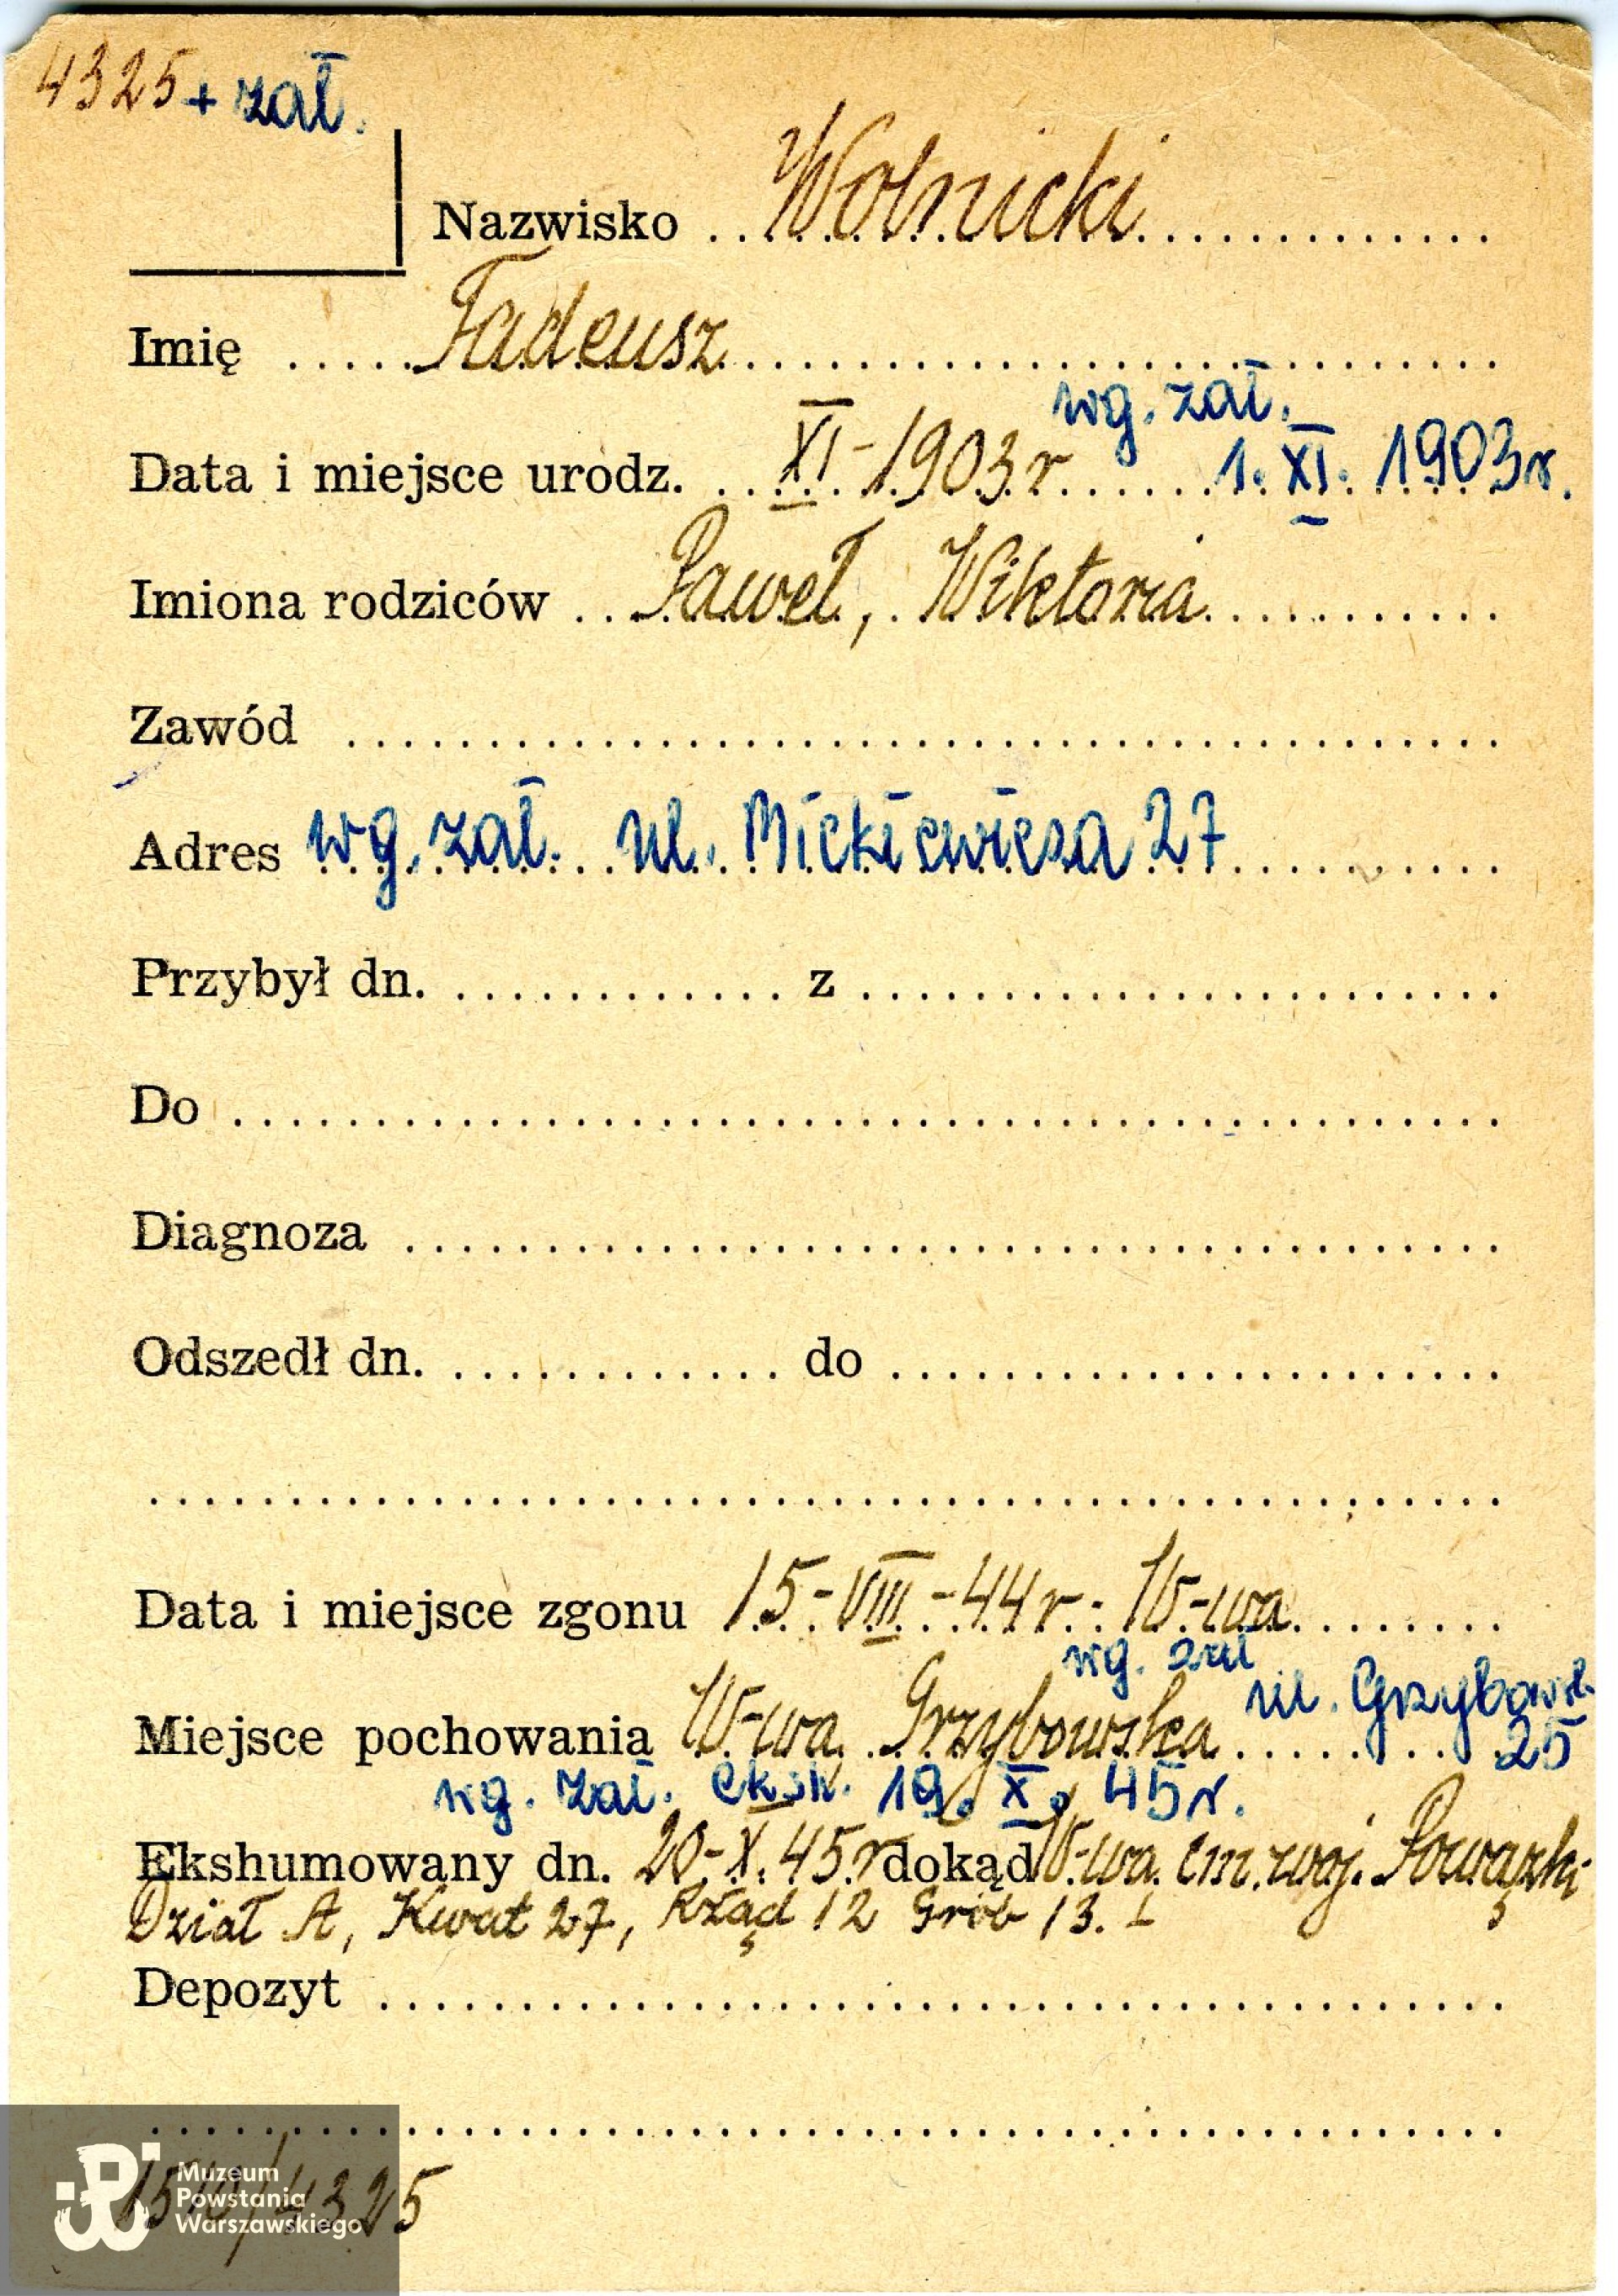 4325 + zał.
Nazwisko Wolnicki
Imię Tadeusz
wg. zał.
Data i miejsce urodz. XI-1903 r 1. XI. 1903 r.
Imiona rodziców Paweł, Wiktoria
Zawód
Adres wg. zał. ul. Mickiewicza 27
Przybył dn. z
Do
Diagnoza
Odszedł dn. do
Data i miejsce zgonu 15-VIII-44 r. W-wa
wg. zał ul. Grzybowsk.
Miejsce pochowania W-wa Grzybowska 25
wg. zał. eksh. 19. X. 45 r.
Ekshumowany dn. 20-X.45 r dokąd W-wa cm. woj. Powązki
Dział A, Kwat 27, Rząd 12 Grób 13.
Depozyt
/4325
Muzeum
Powstania
Warszawskiego